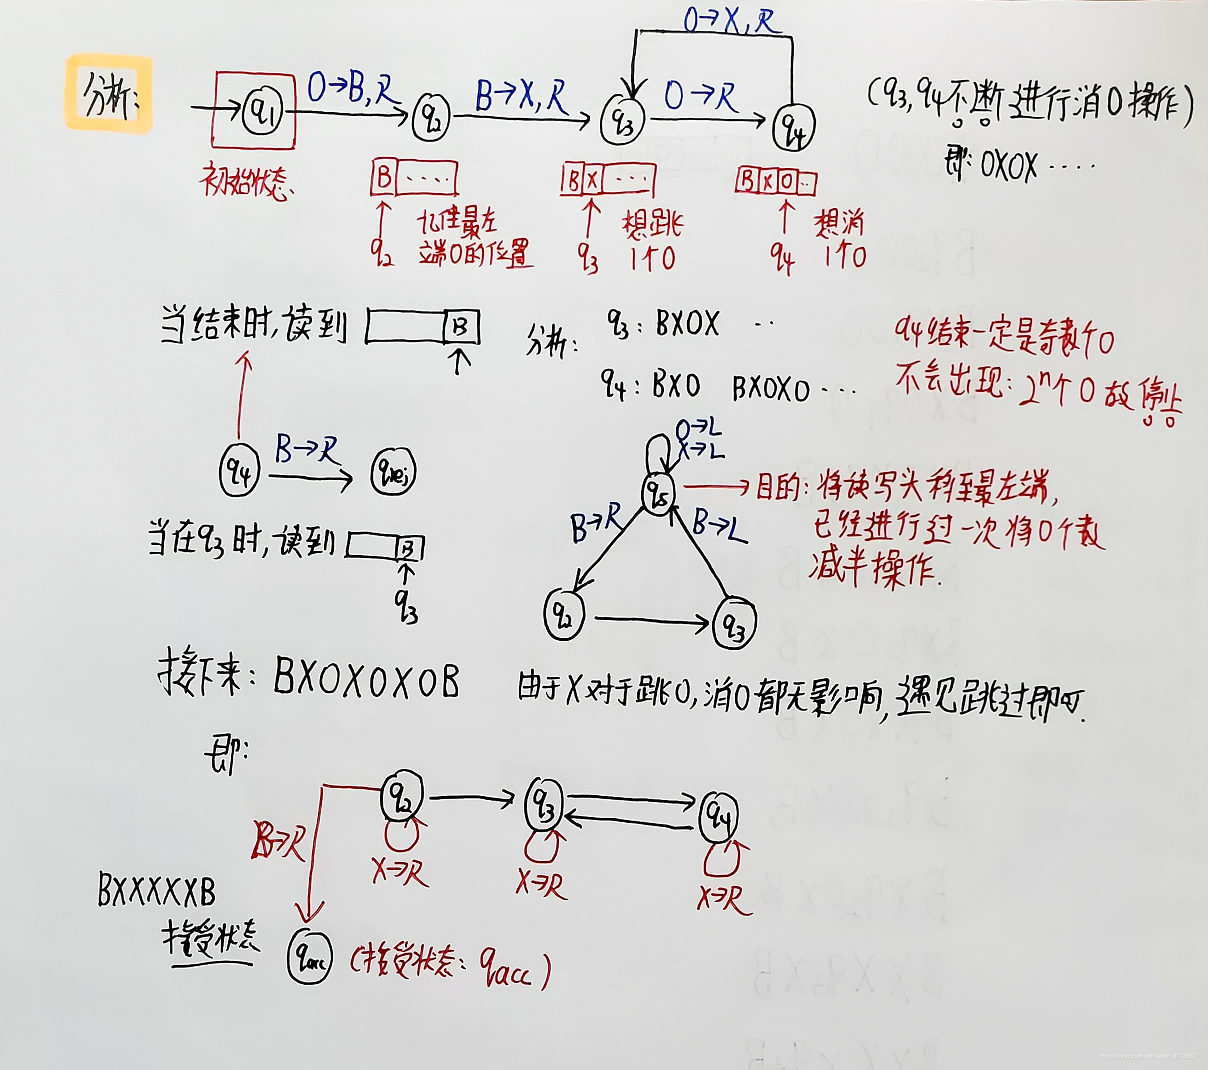 分析:
q1
O→B,R
q2
B→X,R
q3
O→R
q4
O→X,R
(q3,q4不断进行消0操作)
即: OXOX ‥‥
初始状态
B ‥‥
q2
忆住最左
端0的位置
B X ‥‥
q3
想跳
1个0
B X O ‥
q4
想消
1个0
当结束时,读到
B
分析:
q3: BXOX ‥
q4: BXO BXOXO ‥‥
q4结束一定是奇数个0
不会出现: 2ⁿ个0 故停止
q4
B→R
qrej
O→L
X→L
q5
→目的: 将读写头移至最左端,
已经进行过一次将0个数
减半操作.
B→R
B→L
q2
q3
当在q3时,读到
B
q3
接下来: BXOXOXOB
由于X对于跳0,消0都无影响,遇见跳过即可.
即:
q2
q3
q4
B→R
X→R
X→R
X→R
BXXXXXB
接受状态
qacc
(接受状态: qacc)